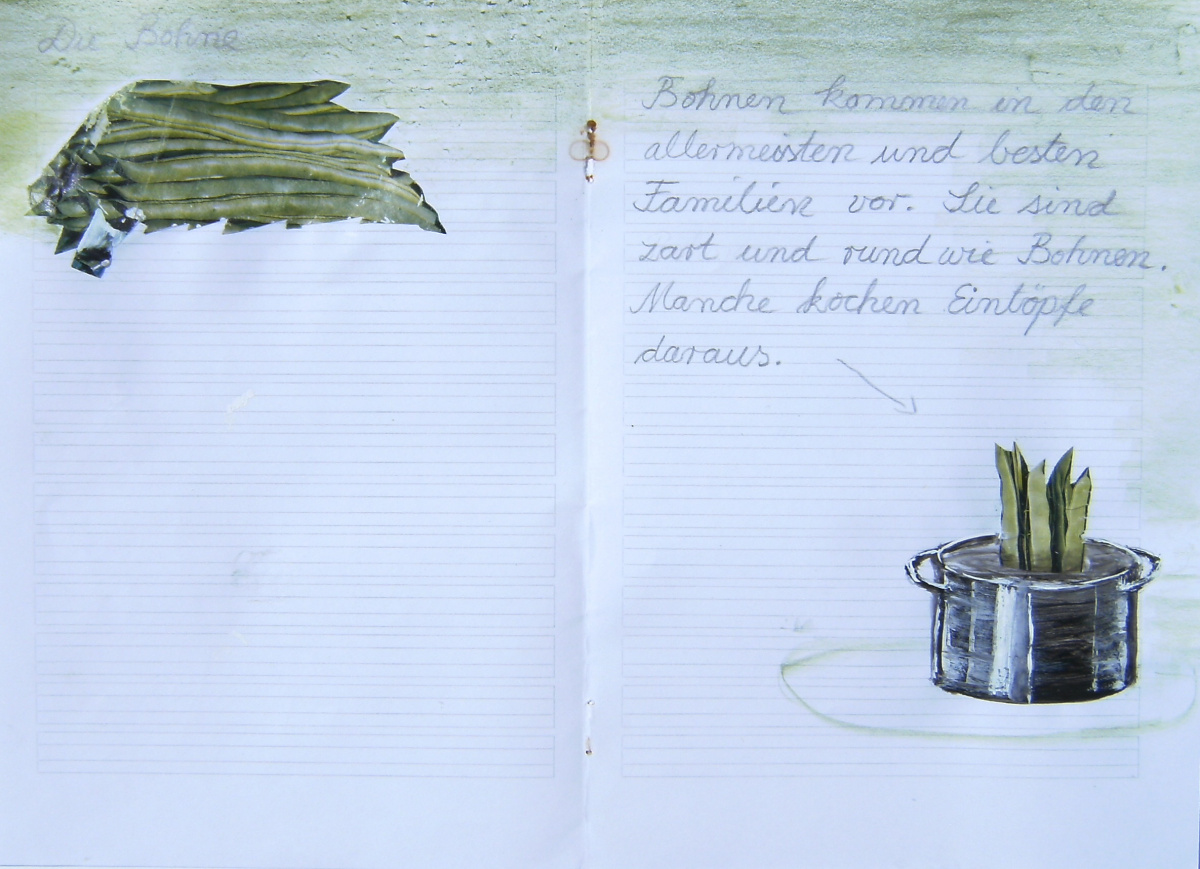 Die Bohne
Bohnen kommen in den
allermeisten und besten
Familien vor. Sie sind
zart und rund wie Bohnen.
Manche kochen Eintöpfe
daraus.